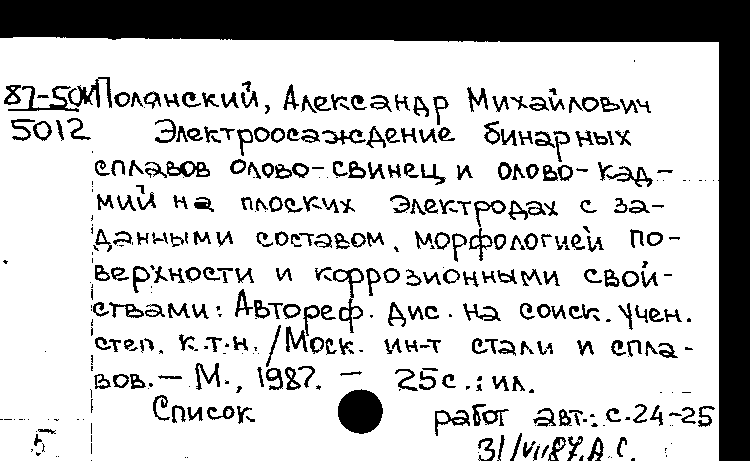 87-5ОК Полянский, Александр Михайлович
5012 Электроосаждение бинарных
сплавов олово-свинец и олово-кад-
мий на плоских электродах с за-
данными составом, морфологией по-
верхности и коррозионными свой-
ствами: Автореф. дис. на соиск. учен.
степ. к.т.н. /Моск. ин-т стали и спла-
вов. — М., 1987. — 25с.: ил.
Список работ авт.: с.24-25
5 31/VII87.А.С.